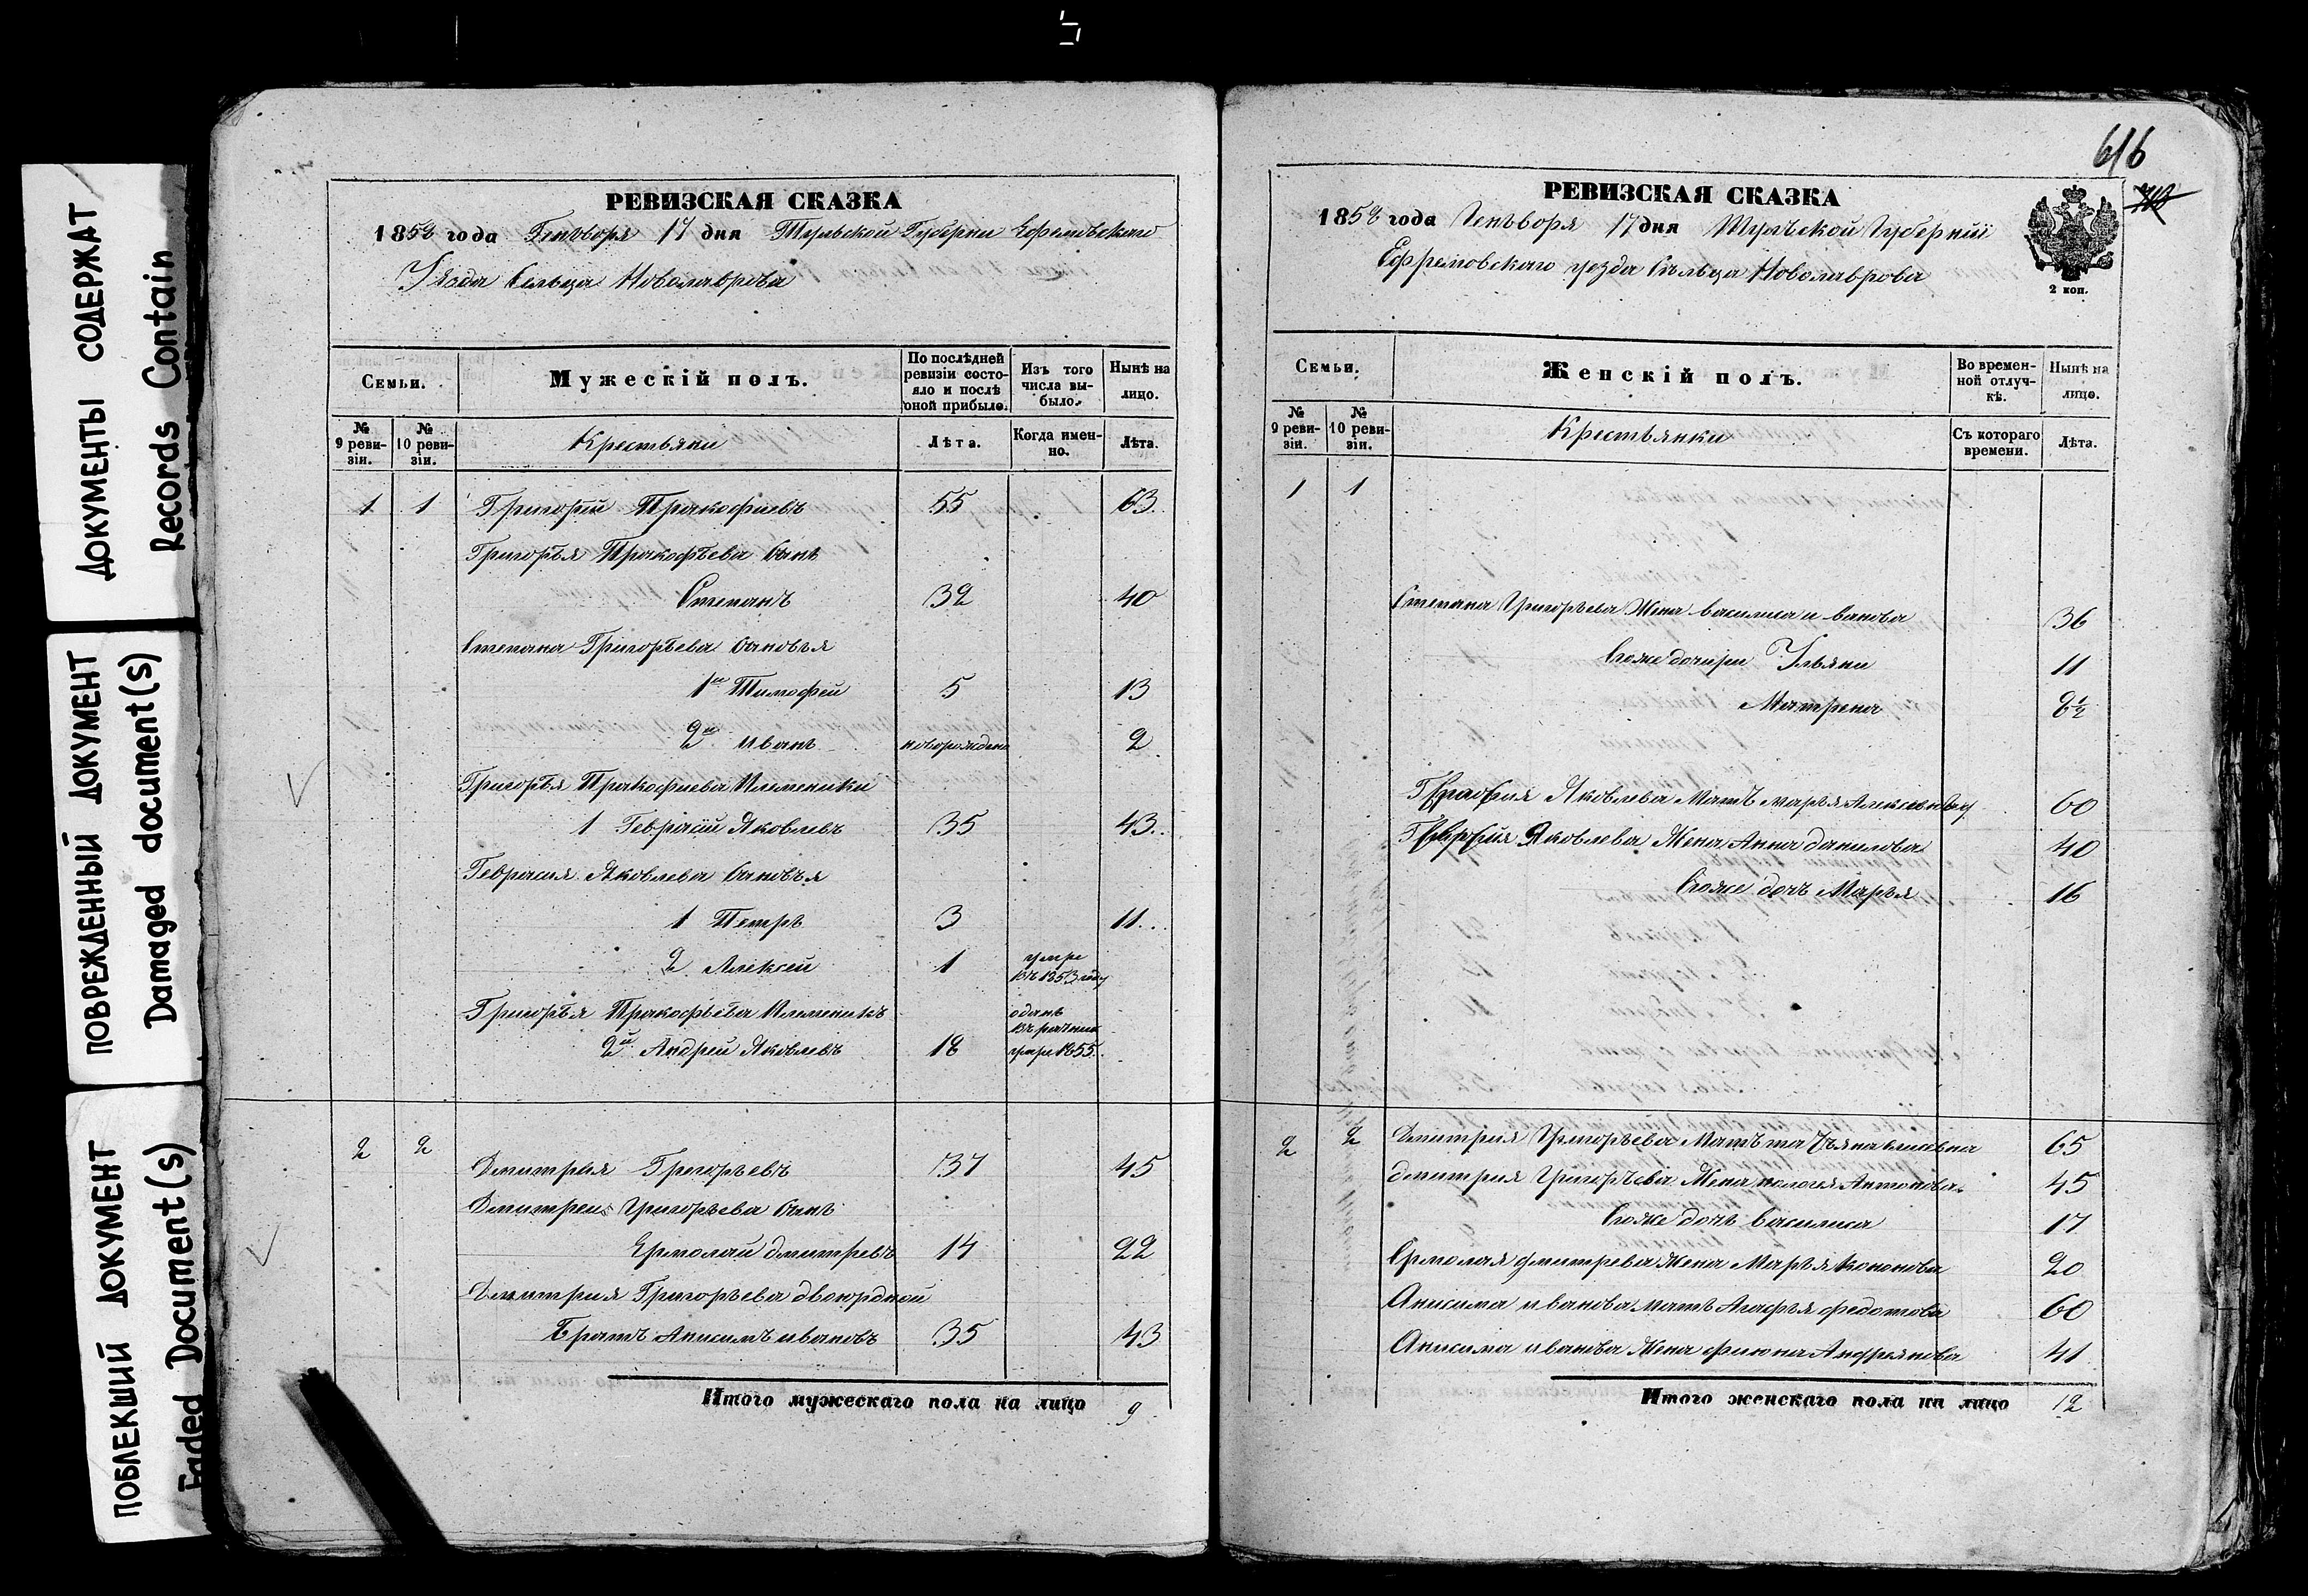 ДОКУМЕНТЫ СОДЕРЖАТ
Records Contain
ПОВРЕЖДЕННЫЙ ДОКУМЕНТ
Damaged document(s)
ПОБЛЕКШИЙ ДОКУМЕНТ
Faded Document(s)
РЕВИЗСКАЯ СКАЗКА
1858 года Генъворя 17 дня Тульской Губерни Ефремовскаго
Уезда Сельца Новолаврова
Семьи.
Мужескій полъ.
По послѣдней ревизіи состояло и послѣ оной прибыло.
Изъ того числа выбыло.
Нынѣ на лицо.
№ 9 ревизіи.
№ 10 ревизіи.
Крестьяни
Лѣта.
Когда именно.
Лѣта.
1 1 Григорий Пракофиевъ 55 63
Григорья Пракофьева Сынъ
Степанъ 32 40
Степана Григорьева Сыновья
1й Тимофей 5 13
2й иванъ новорожденъ 2
Григорья Пракофиева Племеники
1 Геврасий Яковлевъ 35 43
Геврасия Яковлева Сыновья
1 Петръ 3 11
2 Алексей 1 умре въ 1853 году
Григорья Пракофьева Племеникъ
2й Андрей Яковлевъ 18 умре 1855
2 2 Дмитрия Григорьевъ 37 45
Дмитрея Григорьева Сынъ
Ермолай дмитревъ 14 22
Дмитрия Григорьева двоюрдной
Братъ Анисимъ ивановъ 35 43
Итого мужескаго пола на лицо 9
616
РЕВИЗСКАЯ СКАЗКА
1858 года Генъворя 17 дня Тульской Губернии
Ефремовскаго уезда Сельца Новолаврова
2 коп.
Семьи.
Женскій полъ.
Во временной отлучкѣ.
Нынѣ на лицо.
№ 9 ревизіи.
№ 10 ревизіи.
Крестьянки
Съ котораго времени.
Лѣта.
1 1
Степана Григорьева Жена василиса иванова 36
Егоже дочири Ульяна 11
Матрена 8½
Яковлева Мать марья 60
Яковлева Жена Анна данилова 40
Егоже дочь Марья 16
2 2 Дмитрия Григорьева Мать татьяна 65
дмитрия Григорьева Жена Антонова 45
Егоже дочь василиса 17
Ермолая дмитрева Жена Марья Кононова 20
Анисима иванова мать Агафья федотова 60
Анисима иванова Жена фиюна Андреянова 41
Итого женскаго пола на лицо 12